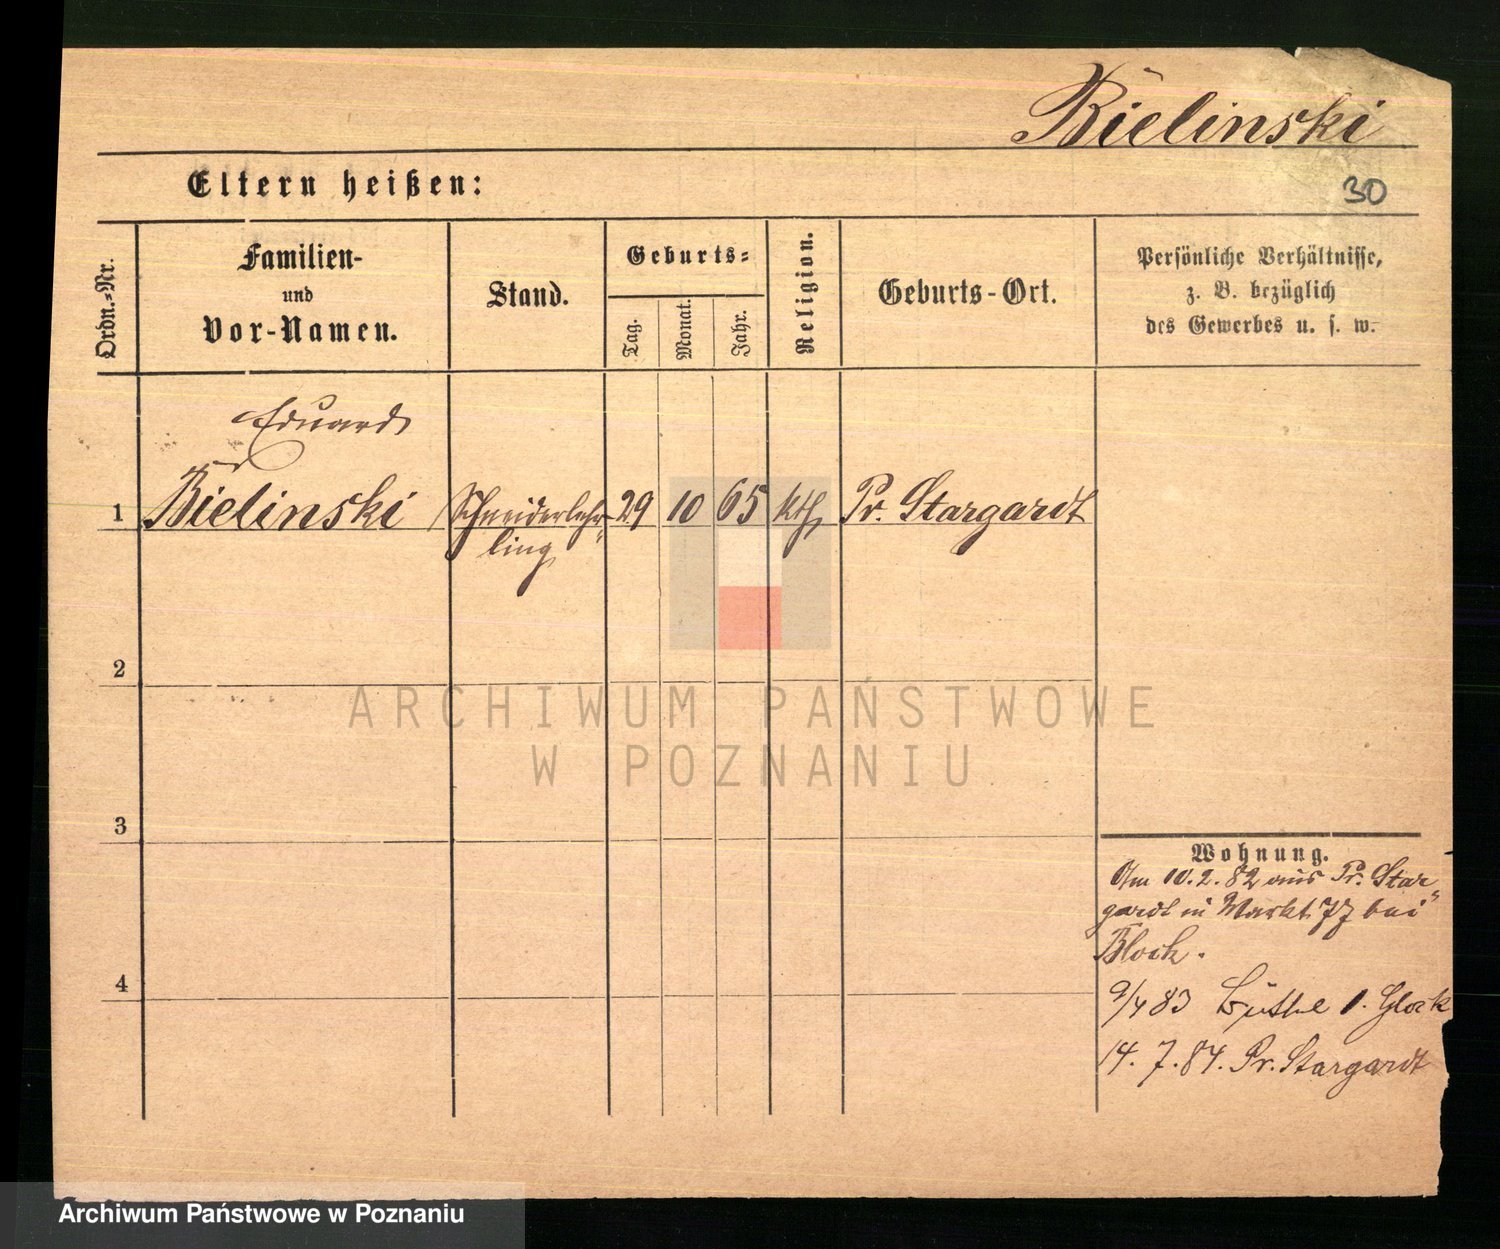 Bielinski
Eltern heißen:
30
Ordn.-Nr.
Familien-
und
Vor-Namen.
Stand.
Geburts-
Tag.
Monat.
Jahr.
Religion.
Geburts-Ort.
Persönliche Verhältnisse,
z. B. bezüglich
des Gewerbes u. s. w.
Eduard
1 Bielinski Schneiderlehr- 29 10 65 kth Pr. Stargardt
ling
2
3
4
Wohnung.
Am 10.2.82 aus Pr. Star-
gardt in Markt 77 bei
Block.
9/4 83 1. Glock
14. 7. 84. Pr. Stargardt
ARCHIWUM PAŃSTWOWE
W POZNANIU
Archiwum Państwowe w Poznaniu